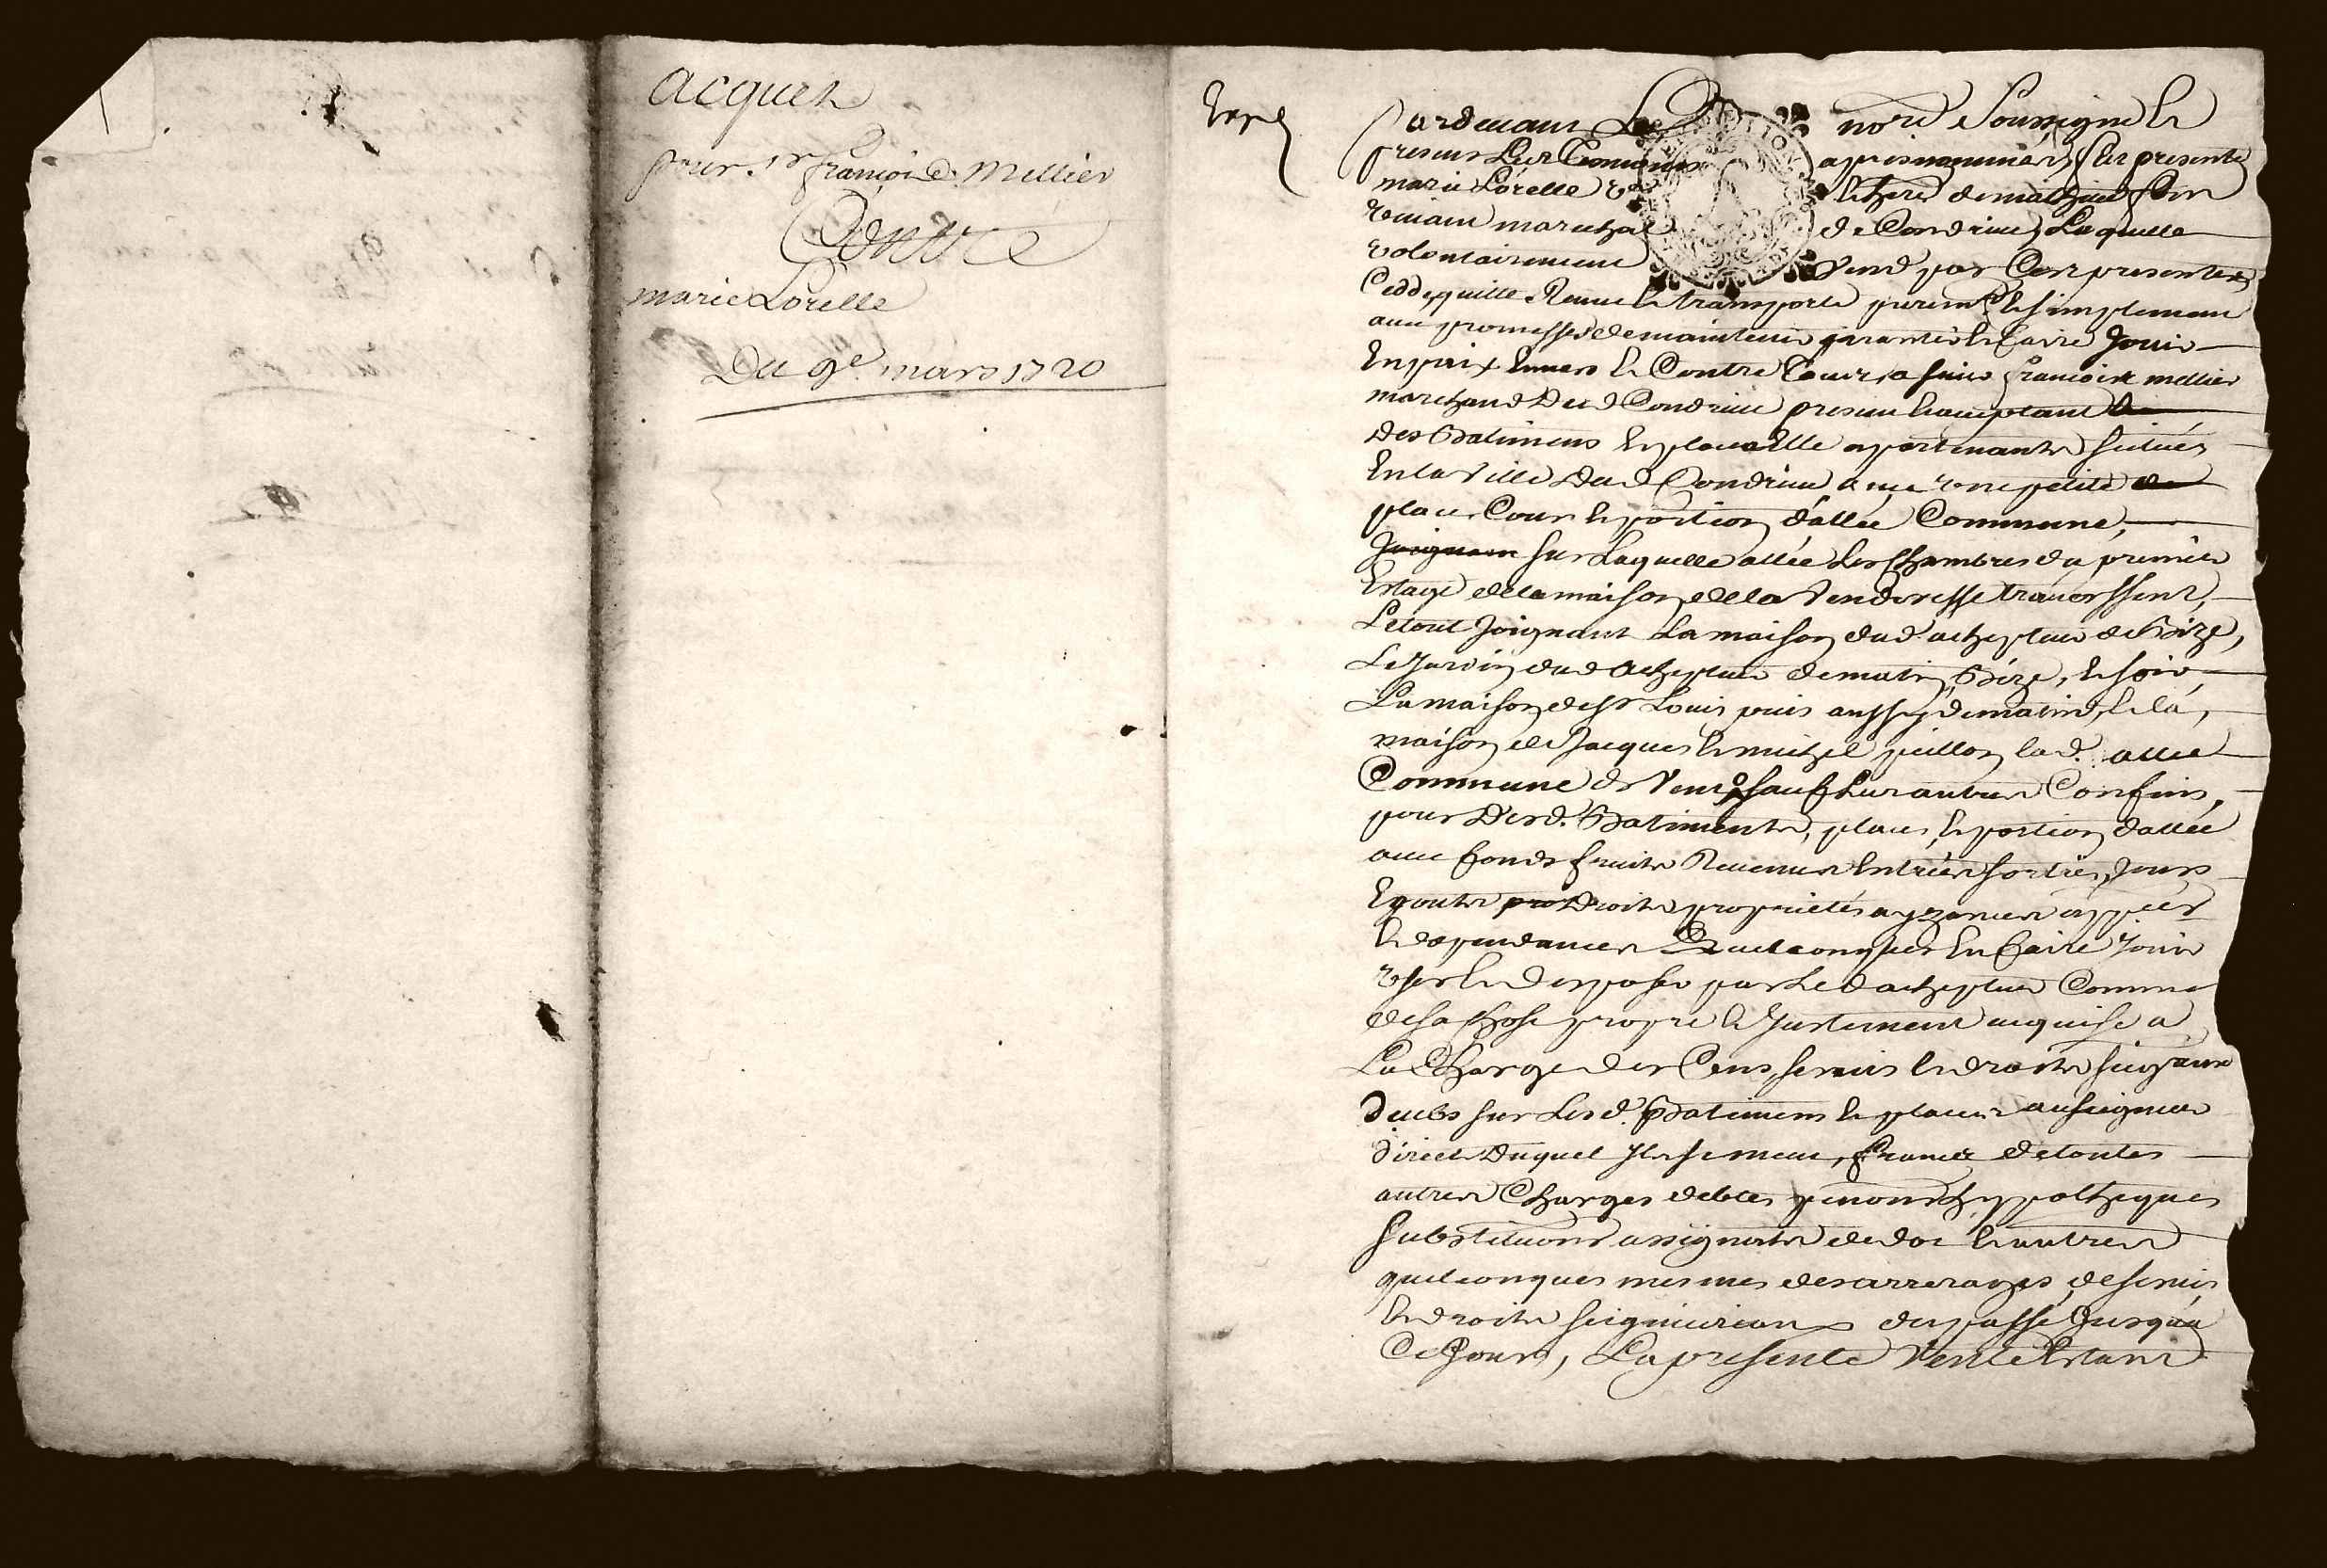 acquet
pour sr françois Mellier
Contre
marie Lorelle
Du 9e mars 1720
Expé
Pardevant Le nore Soussigné Et
presens Les tesmoins apres nommés, fut presente
marie Lorelle vefve de mathieu
vivant marechal de Condrieu, Laquelle
volontairement vend par Ces presentes
Cedde, quitte, Remet Et transporte purement Et simplement
avec promesse de maintenir garantir Et faire Jouir
En paix Envers Et Contre Tous, a sieur françois mellier
marchand dud Condrieu present Et acceptant
des Batimens Et place a Elle apartenants situés
En la Ville dud Condrieu avec une petite
place Cour Et portion d'allée Commune,
Joignant sur Laquelle allée Les Chambres du premier
Estage de la maison de la Venderesse traverssent,
Le tout Joignant La maison dud. achepteur de Bize,
Le Jardin dud achepteur de matin, Bize, Et soir,
La maison de sr Louis puis aussy de matin, Et la
maison de Jacques Et michel peillon, lad. allée
Commune de Vent, sauf Leurs autres Confins,
pour desd. Batiments, place, Et portion d'allée
avec fonds fruits Revenus Entrées sorties, Jours
Egouts droits proprietés ayzances
Et dependances Quelconques En faire Jouir
user Et disposer par Led achepteur Comme
de sa Chose propre Et Justement acquise a
La Charge des Cens, servis Et droits seigneuriaux
deubs sur Lesd. Batimens Et place au seigneur
direct duquel Ils se meuvent, francs de toutes
autres Charges debtes pensions hyppotheques
substitutions assignats de dot Et autres
quelconques mesmes des arrerages de servis
Et droits seigneuriaux du passé Jusqu'a
Ce Jour, La presente Vente Estant